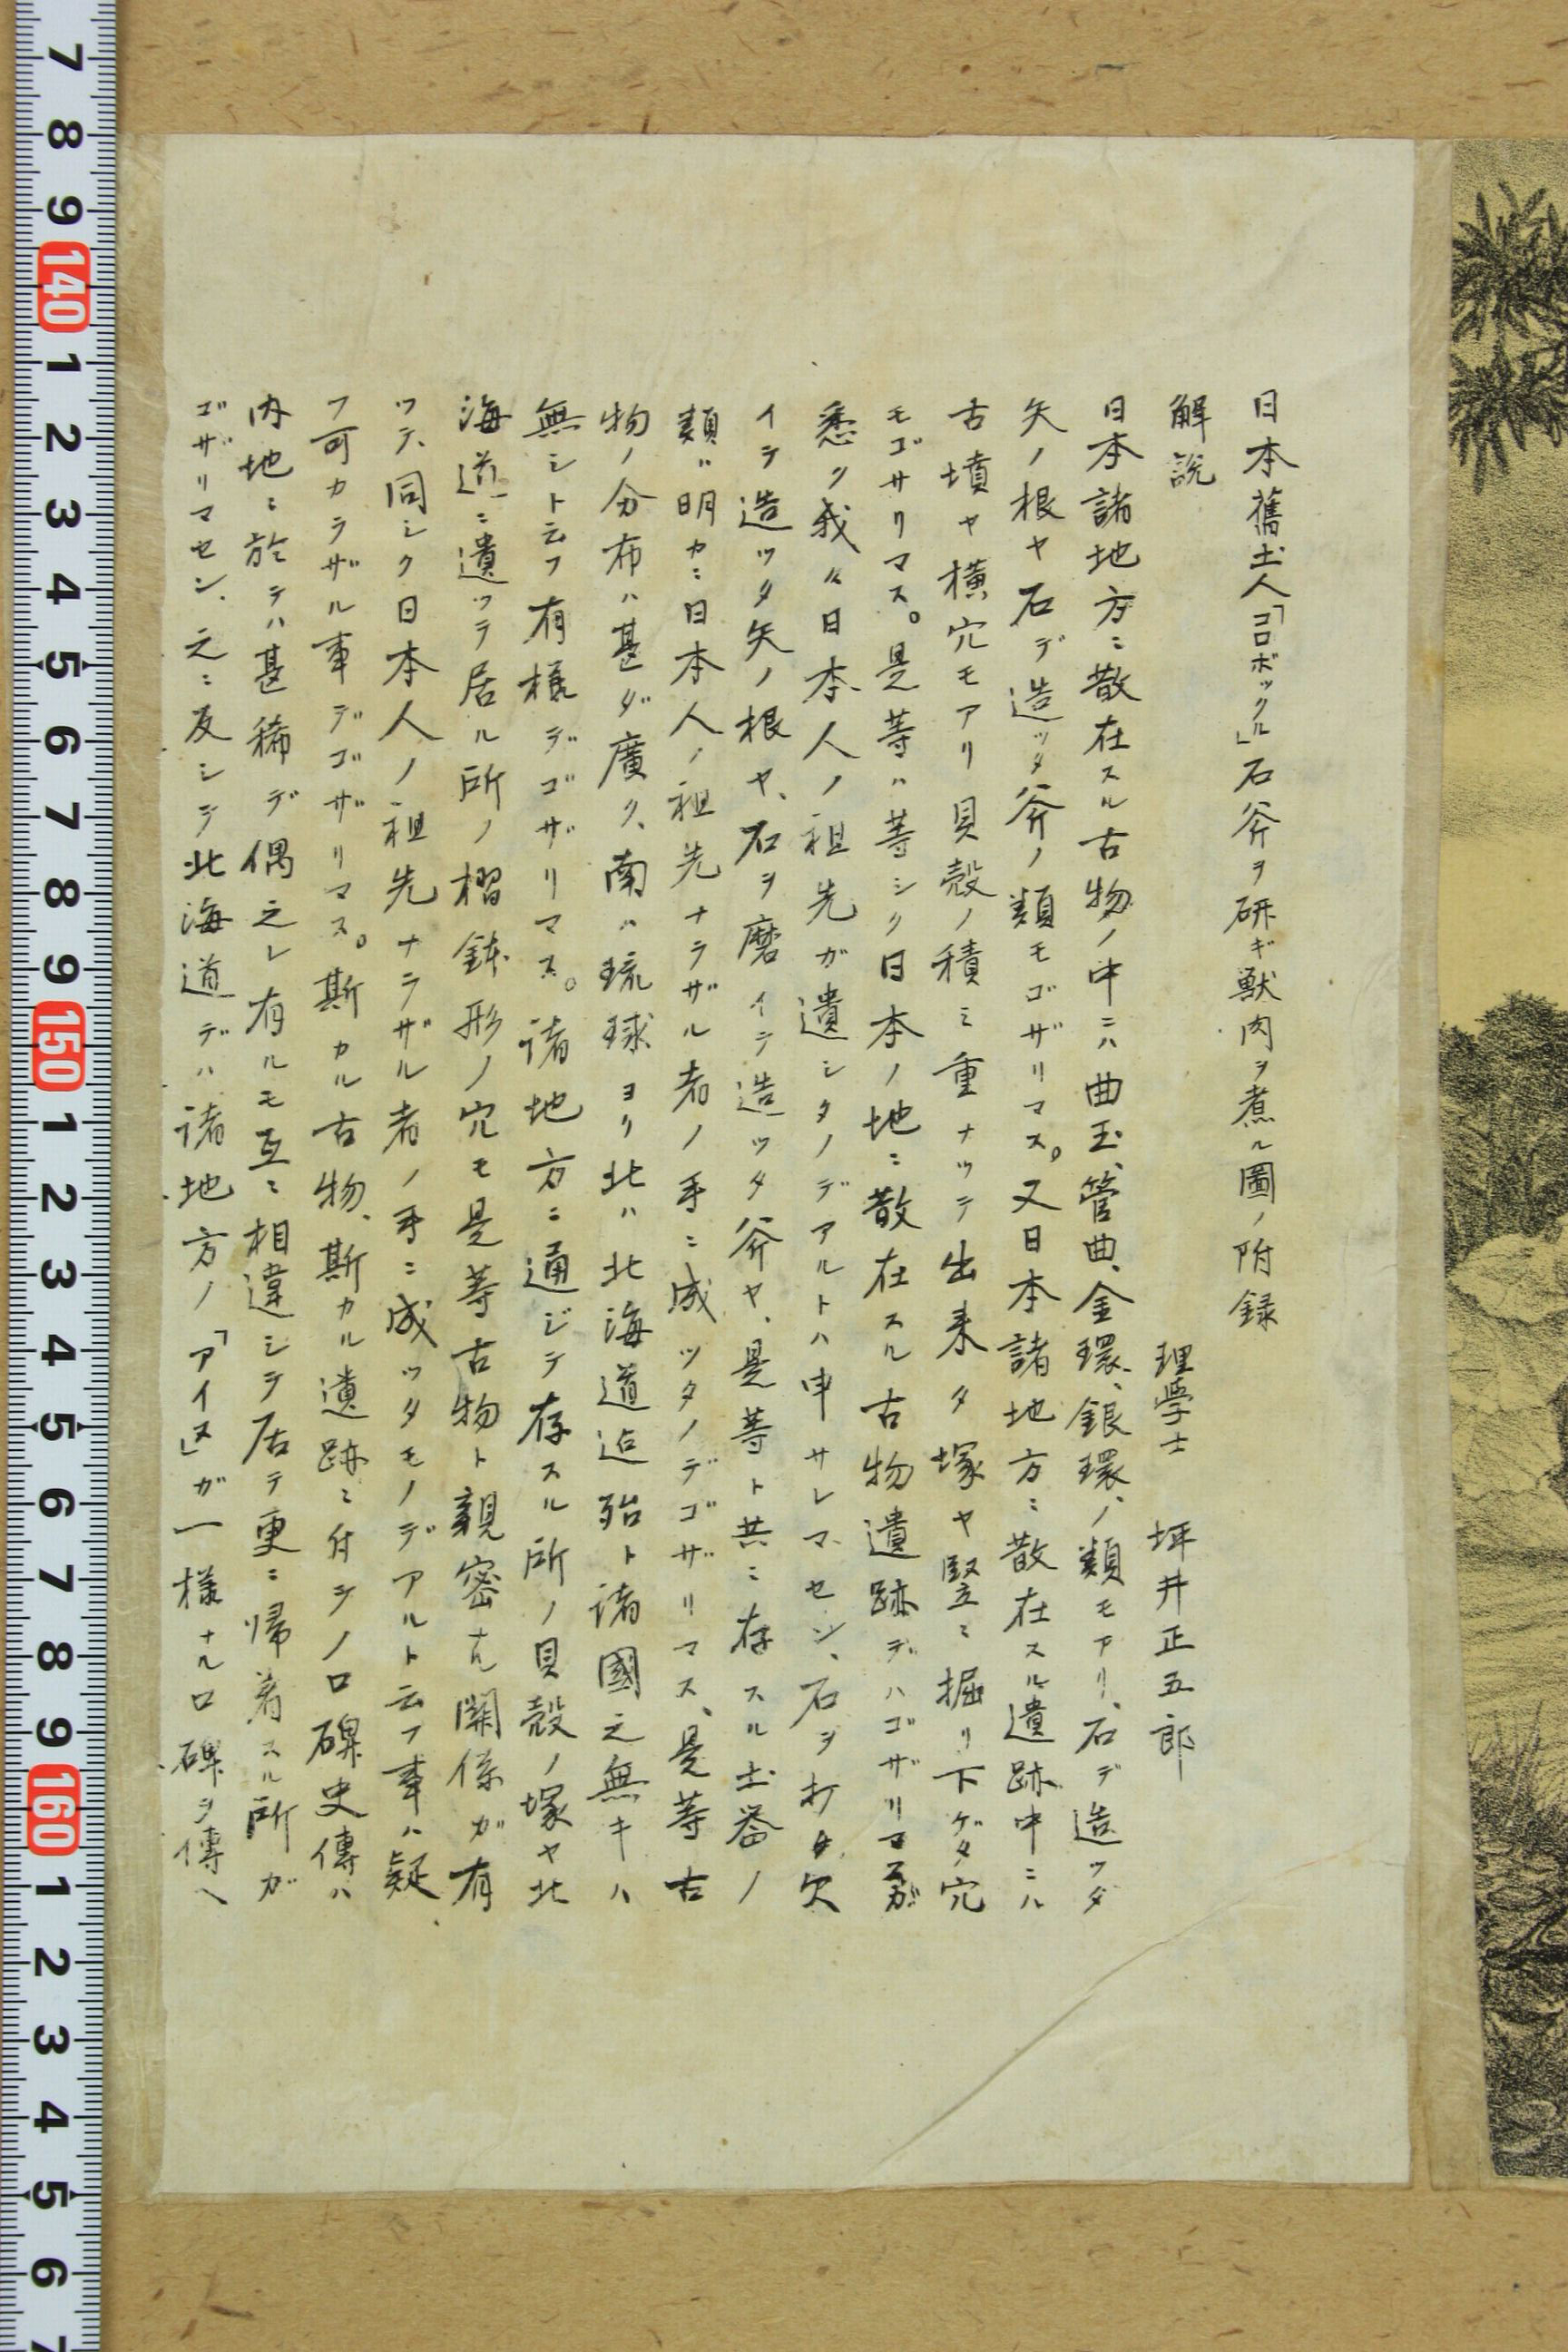 日本舊土人「コロボックル」石斧ヲ研ギ獸肉ヲ煮ル圖ノ附録
解説
理學士 坪井正五郎
日本諸地方ニ散在スル古物ノ中ニハ曲玉、管曲、金環、銀環、ノ類モアリ、石デ造ツタ
矢ノ根ヤ石デ造ツタ斧ノ類モゴザリマス。又日本諸地方ニ散在スル遺跡中ニハ
古墳ヤ横穴モアリ貝殼ノ積ミ重ナツテ出来タ塚ヤ竪ニ掘リ下ゲタ穴
モゴサリマス。是等ハ等シク日本ノ地ニ散在スル古物遺跡デハゴザリマスガ
悉ク我々日本人ノ祖先ガ遺シタノデアルトハ申サレマセン、石ヲ打チ欠
イテ造ツタ矢ノ根ヤ、石ヲ磨イテ造ツタ斧ヤ、是等ト共ニ存スル土器ノ
類ハ明カニ日本人ノ祖先ナラザル者ノ手ニ成ツタノデゴザリマス、是等古
物ノ分布ハ甚ダ廣ク、南ハ琉球ヨリ北ハ北海道迠殆ト諸國之無キハ
無シト云フ有様デゴザリマス。諸地方ニ通ジテ存スル所ノ貝殼ノ塚ヤ北
海道ニ遺ツテ居ル所ノ摺鉢形ノ穴モ是等古物ト親密ナル関係ガ有
ツテ、同シク日本人ノ祖先ナラザル者ノ手ニ成ツタモノデアルト云フ事ハ疑
フ可カラザル事デゴザリマス。斯カル古物、斯カル遺跡ニ付テノ口碑史傳ハ
内地ニ於テハ甚稀デ偶之レ有ルモ互ニ相違シテ居テ更ニ帰着スル所ガ
ゴザリマセン、之ニ反シテ北海道デハ諸地方ノ「アイヌ」ガ一様ナル口碑ヲ傳ヘ
7
8
9
140
1
2
3
4
5
6
7
8
9
150
1
2
3
4
5
6
7
8
9
160
1
2
3
4
5
6
7